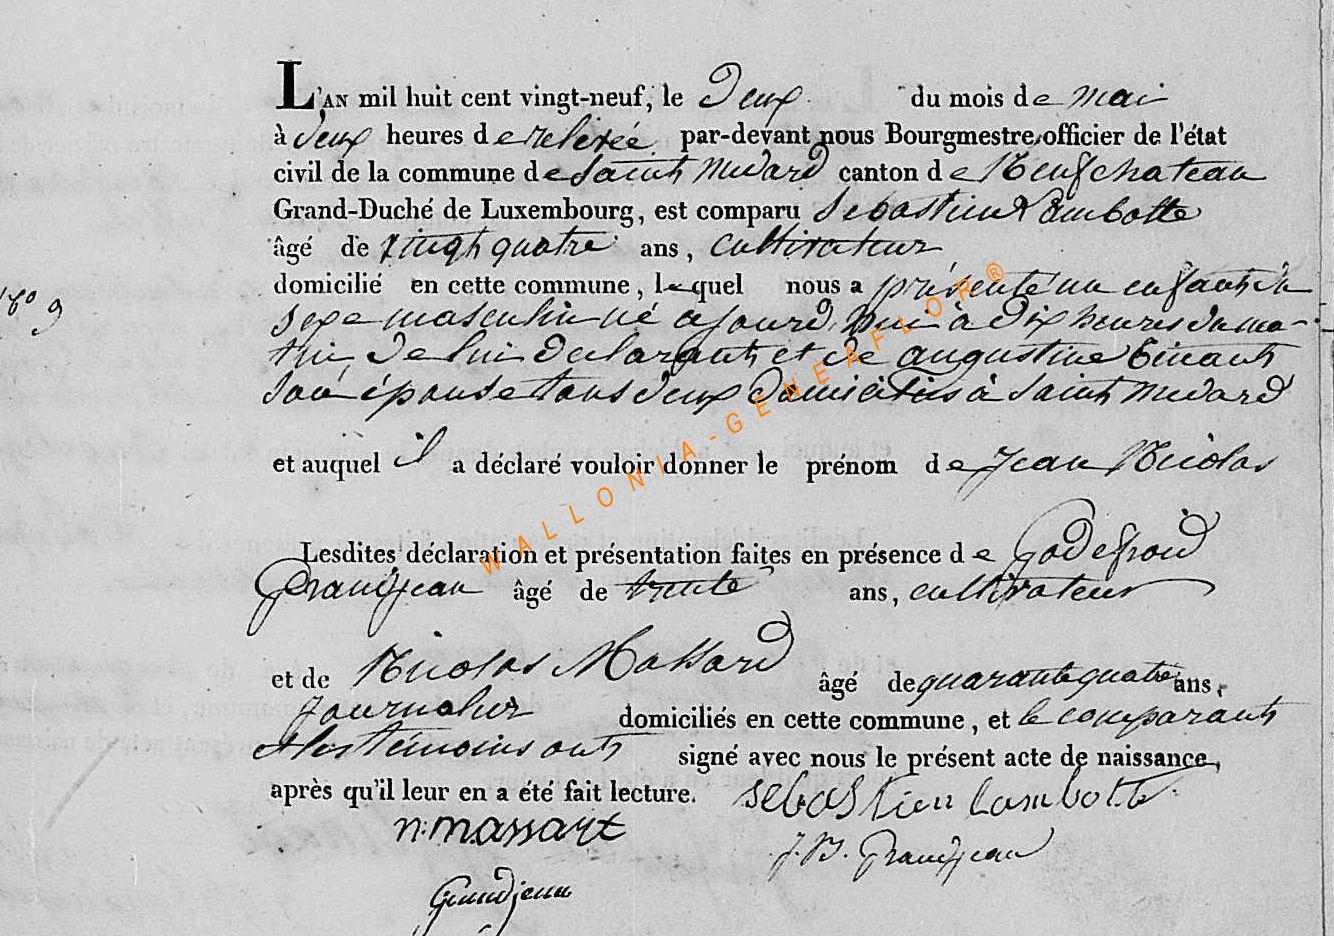 L'AN mil huit cent vingt-neuf, le Deux du mois de mai
à deux heures de relevée par-devant nous Bourgmestre, officier de l'état
civil de la commune de Saint Medard canton de Neufchateau
Grand-Duché de Luxembourg, est comparu Sebastien Lambotte
âgé de vingt quatre ans, cultivateur
domicilié en cette commune, lequel nous a présenté un enfant du
N° 9
Sexe masculin né ajourd'hui à Dix heures du ma-
tin, de lui declarant et de augustine
Son épouse tous deux domiciliés à Saint Medard
et auquel il a déclaré vouloir donner le prénom de Jean Nicolas
Lesdites déclaration et présentation faites en présence de Godefroid
Grandjean âgé de trente ans, cultivateur
et de Nicolas Massard âgé de quarante quatre ans,
Journalier domiciliés en cette commune, et le comparant
et les témoins ont signé avec nous le présent acte de naissance,
après qu'il leur en a été fait lecture. sebastien lambotte
n: massart
J. B. Grandjean
Grandjean
WALLONIA-GENEAFLOR®